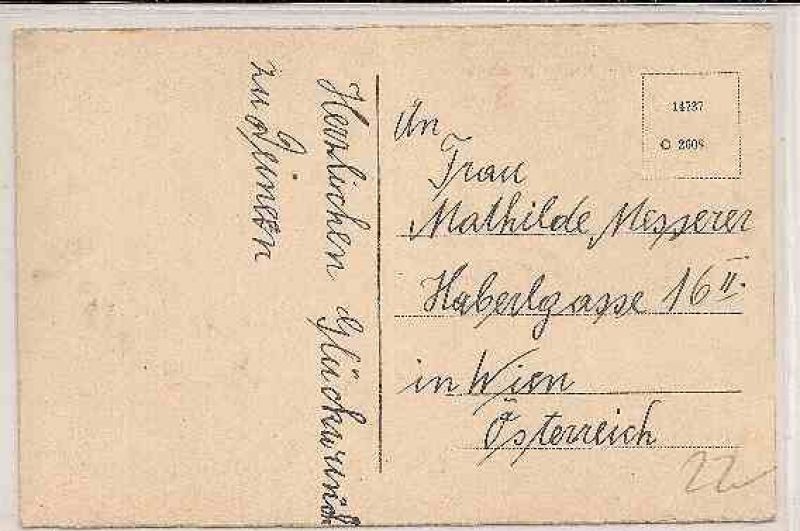 Herzlichen Glückwunsch
zu Deinen
14737
2608
An
Frau
Mathilde Messerer
Haberlgasse 16 II.
in Wien
Österreich
22